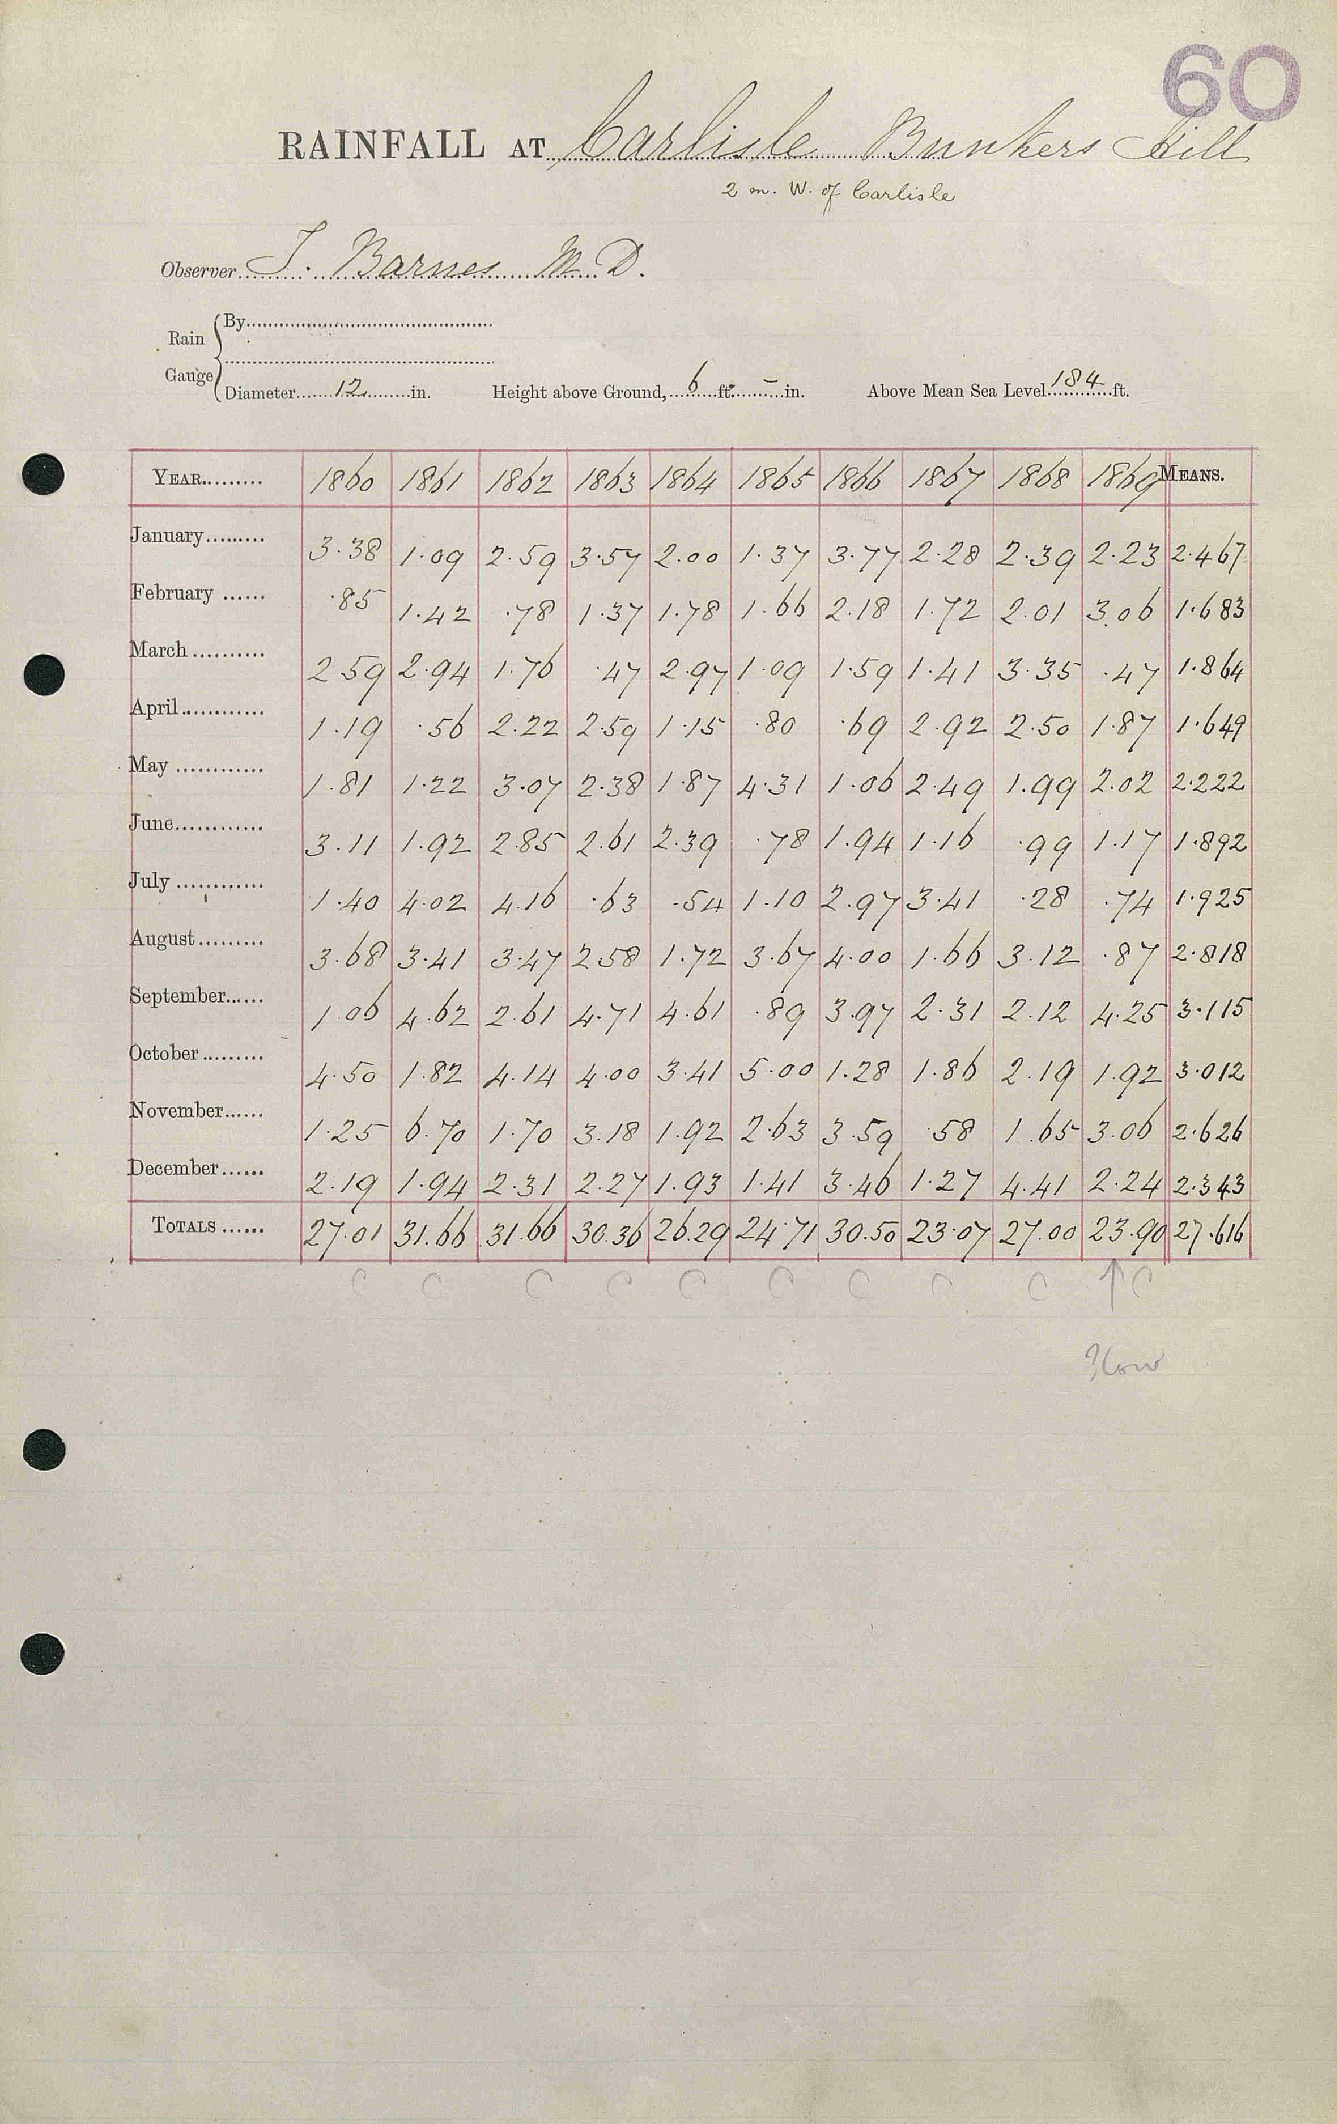 60
RAINFALL AT Carlisle Bunkers Hill
2 m. W. of Carlisle
Observer T. Barnes M.D.
Rain Gauge { By
Diameter 12 in. Height above Ground, 6 ft. - in. Above Mean Sea Level 184 ft.
YEAR......... 1860 1861 1862 1863 1864 1865 1866 1867 1868 1869 MEANS.
January......... 3.38 1.09 2.59 3.57 2.00 1.37 3.77 2.28 2.39 2.23 2.467
February ...... .85 1.42 .78 1.37 1.78 1.66 2.18 1.72 2.01 3.06 1.683
March .......... 2.59 2.94 1.76 .47 2.97 1.09 1.59 1.41 3.35 .47 1.864
April............ 1.19 .56 2.22 2.59 1.15 .80 .69 2.92 2.50 1.87 1.649
May ............ 1.81 1.22 3.07 2.38 1.87 4.31 1.06 2.49 1.99 2.02 2.222
June............ 3.11 1.92 2.85 2.61 2.39 .78 1.94 1.16 .99 1.17 1.892
July ............ 1.40 4.02 4.16 .63 .54 1.10 2.97 3.41 .28 .74 1.925
August......... 3.68 3.41 3.47 2.58 1.72 3.67 4.00 1.66 3.12 .87 2.818
September...... 1.06 4.62 2.61 4.71 4.61 .89 3.97 2.31 2.12 4.25 3.115
October ......... 4.50 1.82 4.14 4.00 3.41 5.00 1.28 1.86 2.19 1.92 3.012
November...... 1.25 6.70 1.70 3.18 1.92 2.63 3.59 .58 1.65 3.06 2.626
December ...... 2.19 1.94 2.31 2.27 1.93 1.41 3.46 1.27 4.41 2.24 2.343
TOTALS ...... 27.01 31.66 31.66 30.36 26.29 24.71 30.50 23.07 27.00 23.90 27.616
C C C C C C C C C ↑ C
?low